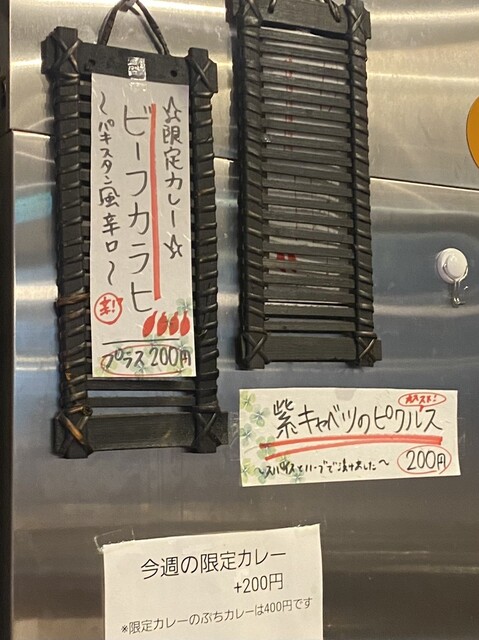 ☆限定カレー☆
ビーフカラヒ
～パキスタン風辛口～
辛!
プラス200円
紫キャベツのピクルス
200円
～スパイスとハーブで漬けました～
今週の限定カレー
+200円
※限定カレーのぷちカレーは400円です